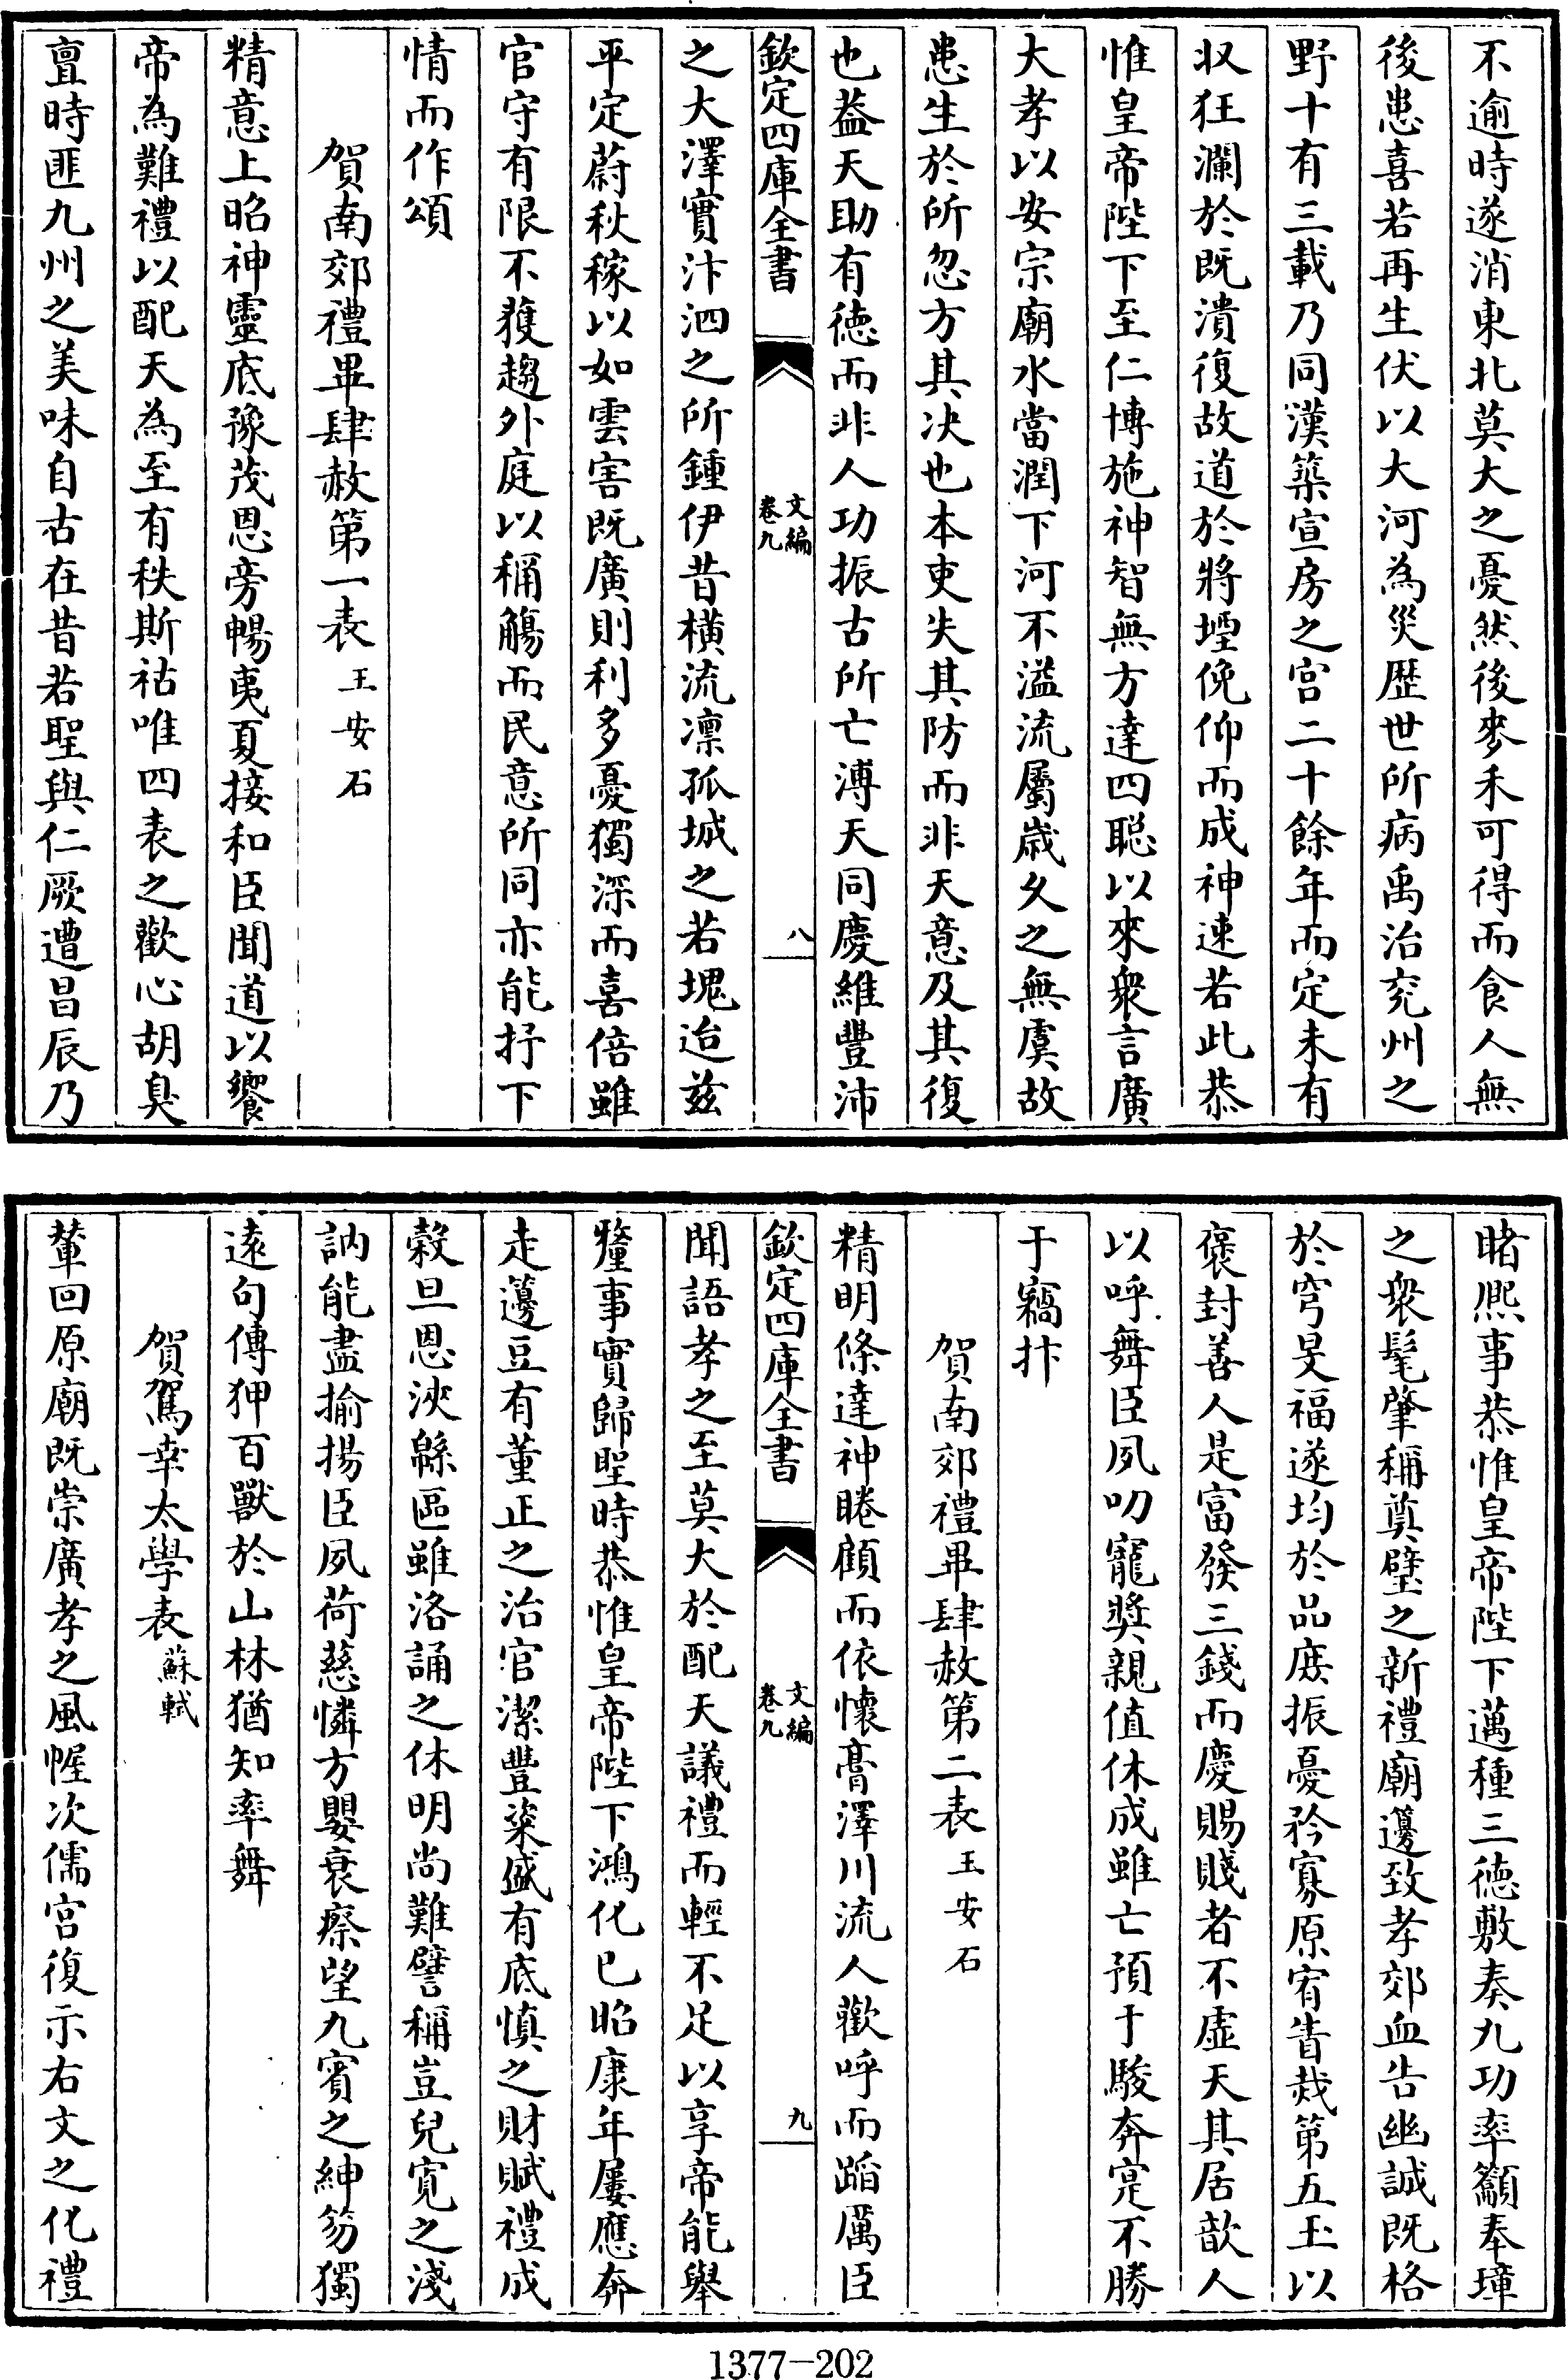 不逾時遂消東北莫大之憂然後麥禾可得而食人無
後患喜若再生伏以大河為災歴世所病禹治兖州之
野十有三載乃同漢築宣房之宫二十餘年而定未有
収狂瀾於既潰復故道於將堙俛仰而成神速若此恭
惟皇帝陛下至仁博施神智無方達四聰以來衆言廣
大孝以安宗廟水當潤下河不溢流屬歳久之無虞故
患生於所忽方其決也本吏失其防而非天意及其復
也葢天助有德而非人功振古所亡溥天同慶維豐沛
欽定四庫全書
文編
卷九
八
之大澤實汴泗之所鍾伊昔横流凛孤城之若塊迨兹
平定蔚秋稼以如雲害既廣則利多憂獨深而喜倍雖
官守有限不獲趨外庭以稱觴而民意所同亦能抒下
情而作頌
賀南郊禮畢肆赦第一表 王安石
精意上昭神靈底豫茂恩旁暢夷夏接和臣聞道以饗
帝為難禮以配天為至有秩斯祜唯四表之歡心胡臭
亶時匪九州之美味自古在昔若聖與仁厥遭昌辰乃
睹熈事恭惟皇帝陛下邁種三德敷奏九功率籲奉璋
之衆髦肇稱奠璧之新禮廟邊致孝郊血告幽誠既格
於穹旻福遂均於品庶振憂矜寡原宥眚烖第五玉以
褒封善人是富發三錢而慶賜賤者不虛天其居歆人
以呼舞臣夙叨寵奬親值休成雖亡預于駿奔寔不勝
于竊抃
賀南郊禮畢肆赦第二表 王安石
精明條達神睠顧而依懷膏澤川流人歡呼而蹈厲臣
欽定四庫全書
文編
卷九
九
聞語孝之至莫大於配天議禮而輕不足以享帝能舉
釐事實歸聖時恭惟皇帝陛下鴻化已昭康年屢應奔
走籩豆有董正之治官潔豐粢盛有底慎之財賦禮成
榖旦恩浹緜區雖洛誦之休明尚難譬稱豈兒寬之淺
訥能盡揄揚臣夙荷慈憐方嬰衰瘵望九賓之紳笏獨
逺句傳狎百獸於山林猶知率舞
賀駕幸太學表 蘇軾
輦回原廟既崇廣孝之風幄次儒宫復示右文之化禮
1377-202